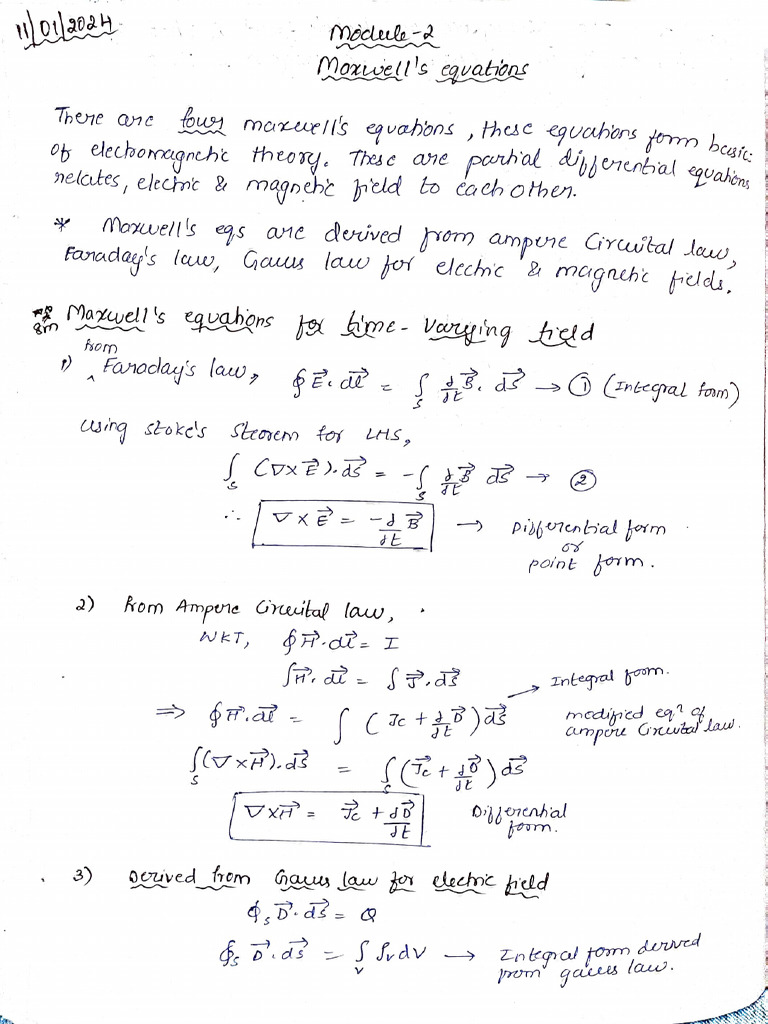 11/01/2024
Module-2
Maxwell's equations
There are four maxwell's equations, these equations form basic
of electromagnetic theory. These are partial differential equations
relates, electric & magnetic field to each other.
* Maxwell's eqs are derived from ampere Circuital law,
Faraday's law, Gauss law for electric & magnetic fields.
8m Maxwell's equations for time-varying field
1) from Faraday's law, ∮ E⃗. dl⃗ = ∫_S ∂/∂t B⃗. dS⃗ → ① (Integral form)
using stoke's theorem for LHS,
∫_S (∇×E⃗).dS⃗ = -∫_S ∂/∂t B⃗ dS⃗ → ②
∴ ∇×E⃗ = -∂/∂t B⃗ → Differential form
or
point form.
2) from Ampere Circuital law,
WKT, ∮H⃗.dl⃗ = I
∫H⃗. dl⃗ = ∫ J⃗. dS⃗
→ Integral form.
⇒ ∮H⃗.dl⃗ = ∫ (Jc + ∂/∂t D⃗) dS⃗ modified eqⁿ of
ampere Circuital law.
∫_S (∇×H⃗).dS⃗ = ∫_S (J⃗c + ∂/∂t D⃗) dS⃗
∇×H⃗ = J⃗c + ∂D⃗/∂t Differential
form.
3) Derived from Gauss law for electric field
∮_S D⃗. dS⃗ = Q
∮_S D⃗. dS⃗ = ∫_V ρv dv → Integral form derived
from gauss law.